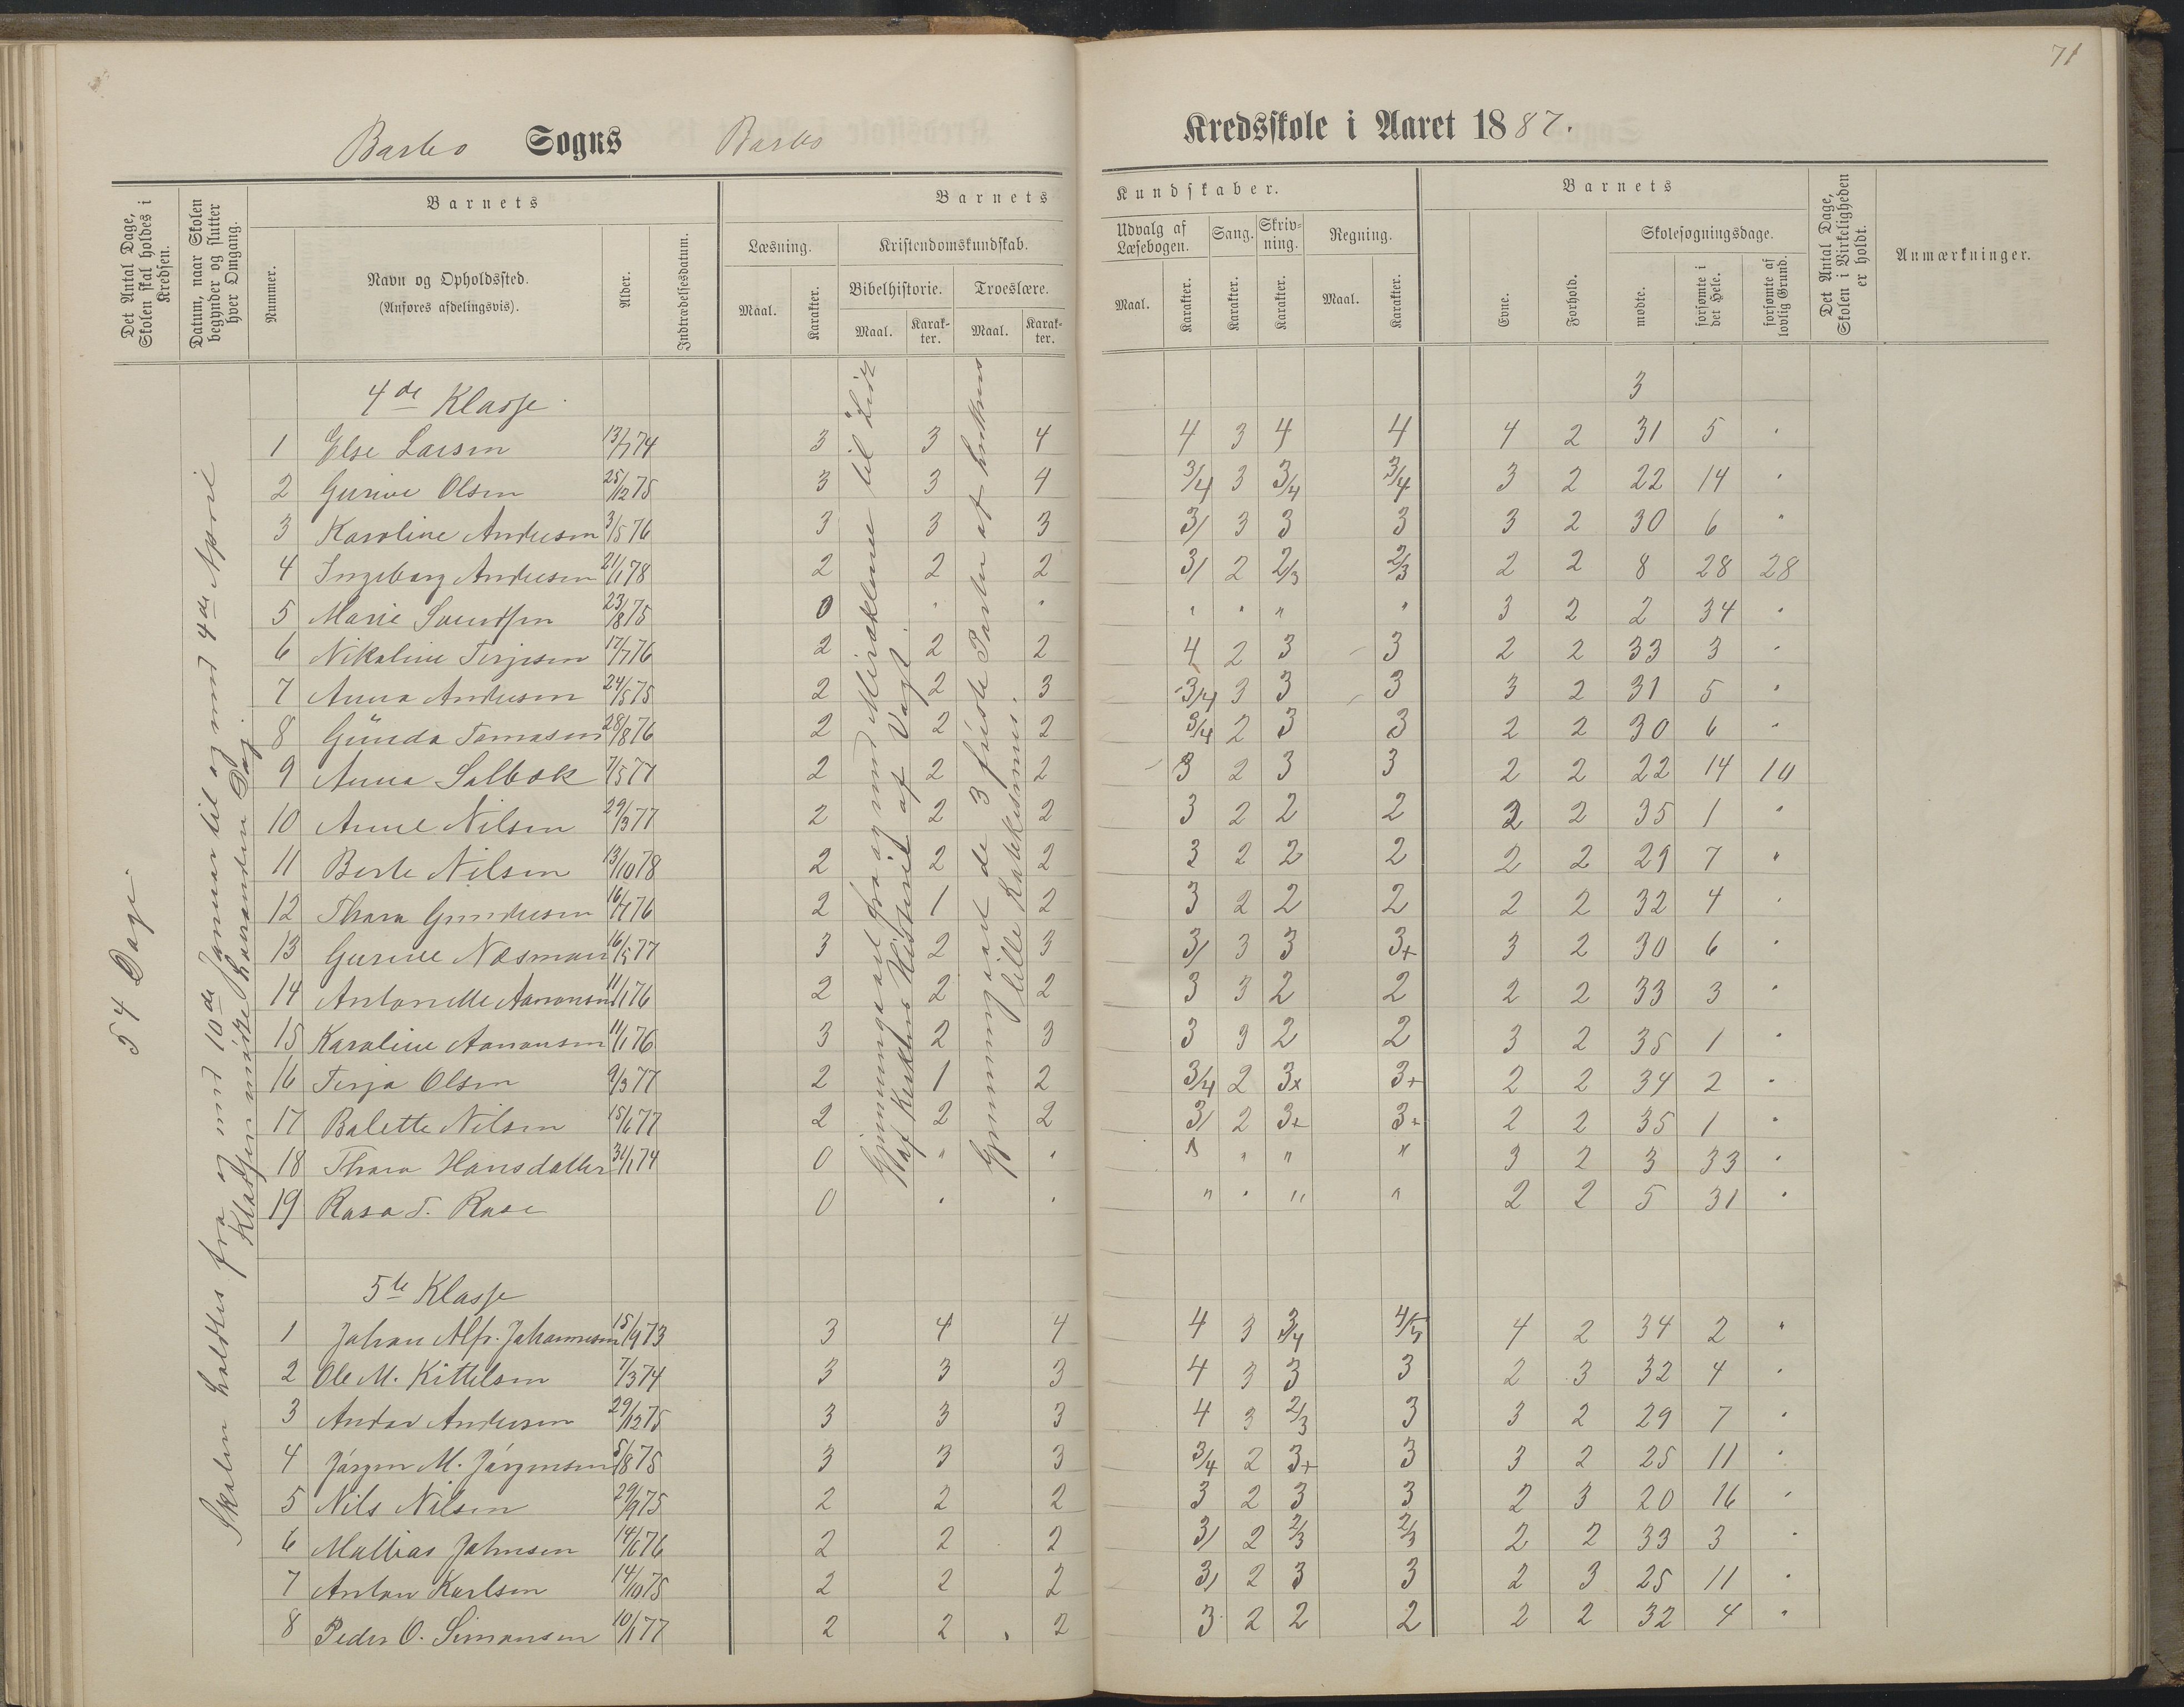 71
Barbo Sogns Barbo Kredsskole i Aaret 1887.
Det Antal Dage, Skolen skal holdes i Kredsen.
Datum, naar Skolen begynder og slutter hver Omgang.
Nummer.
Barnets
Navn og Opholdssted.
(Anføres afdelingsvis).
Alder.
Indtrædelsesdatum.
Barnets Kundskaber.
Læsning.
Maal. Karakter.
Kristendomskundskab.
Bibelhistorie. Troeslære.
Maal. Karakter. Maal. Karakter.
Udvalg af Læsebogen.
Maal. Karakter.
Sang.
Karakter.
Skrivning.
Karakter.
Regning.
Maal. Karakter.
Barnets
Evne.
Forhold.
Skolesøgningsdage.
mødte.
forsømte i det Hele.
forsømte af lovlig Grund.
Det Antal Dage, Skolen i Virkeligheden er holdt.
Anmærkninger.
54 Dage.
Skolen holdtes fra og med 10de Januar til og med 4de April
Klassen mødte hveranden Dag.
Gjennemgaaet fra og med Miraklerne til Lidt
af Kirkens Historie af Vogt.
Gjennemgaaet de 3 første Parter af
lille Katekismus.
4de Klasse 3
1 Else Larsen 13/7 74 3 3 4 4 3 4 4 4 2 31 5 .
2 Gurine Olsen 25/12 75 3 3 4 3/4 3 3/4 3/4 3 2 22 14 .
3 Karoline Andersen 3/5 76 3 3 3 3/ 3 3 3 3 2 30 6 "
4 Ingeborg Andersen 21/1 78 2 2 2 3/ 2 2/3 2/3 2 2 8 28 28
5 Marie Svendsen 23/8 75 0 . . " . " " 3 2 2 34 .
6 Nikoline Terjesen 17/7 76 2 2 2 4 2 3 3 2 2 33 3 .
7 Anna Andersen 24/5 75 2 2 3 3/4 3 3 3 3 2 31 5 .
8 Gunda Tomasen 28/8 76 2 2 2 3/4 2 3 3 2 2 30 6 .
9 Anna Salbok 7/5 77 2 2 2 3 2 3 3 2 2 22 14 10
10 Anne Nilsen 29/3 77 2 2 2 3 2 2 2 2 2 35 1 .
11 Berte Nilsen 13/10 78 2 2 2 3 2 2 2 2 2 29 7 .
12 Thora Gundersen 16/7 76 2 1 2 3 2 2 2 2 2 32 4 .
13 Gurine Næsman 16/5 77 3 2 3 3/ 3 3 3+ 3 2 30 6 .
14 Antonette Aanonsen 11/1 76 2 2 2 3 3 2 2 2 2 33 3 .
15 Karoline Aanonsen 11/1 76 3 2 3 3 3 2 2 3 2 35 1 .
16 Terja Olsen 9/3 77 2 1 2 3/4 2 3+ 3+ 2 2 34 2 .
17 Bolette Nilsen 15/6 77 2 2 2 3/ 2 3+ 3+ 2 2 35 1 .
18 Thora Hansdatter 31/1 74 0 " . " " " " 3 2 3 33 .
19 Rasa T. Rase 0 . . " . " " 2 2 5 31 .
5te Klasse
1 Johan Alfr. Johannesen 15/9 73 3 4 4 4 3 3/4 4/5 4 2 34 2 .
2 Ole M. Kittelsen 7/3 74 3 3 3 4 3 3 3 2 3 32 4 .
3 Andor Andersen 29/12 75 3 3 3 4 3 2/3 3 3 2 29 7 .
4 Jörgen M. Jörgensen 5/8 75 3 3 3 3/4 2 3+ 3 3 2 25 11 .
5 Nils Nilsen 29/9 75 2 2 2 3 2 3 3 2 3 20 16 .
6 Mathias Johnsen 14/6 76 2 2 2 3/ 2 2/3 2/3 2 2 33 3 .
7 Anton Karlsen 14/10 75 2 2 2 3/ 2 3 3 2 3 25 11 .
8 Peder O. Simonsen 10/1 77 2 2 2 3 2 2 2 2 2 32 4 .